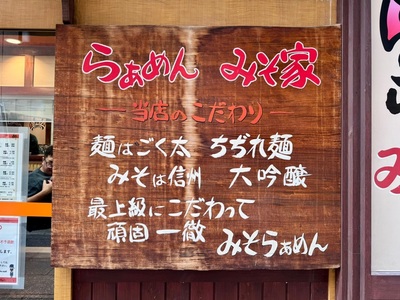 らぁめん みそ家
当店のこだわり
麺はごく太 ちぢれ麺
みそは信州 大吟醸
最上級にこだわって
頑固一徹 みそらぁめん
み